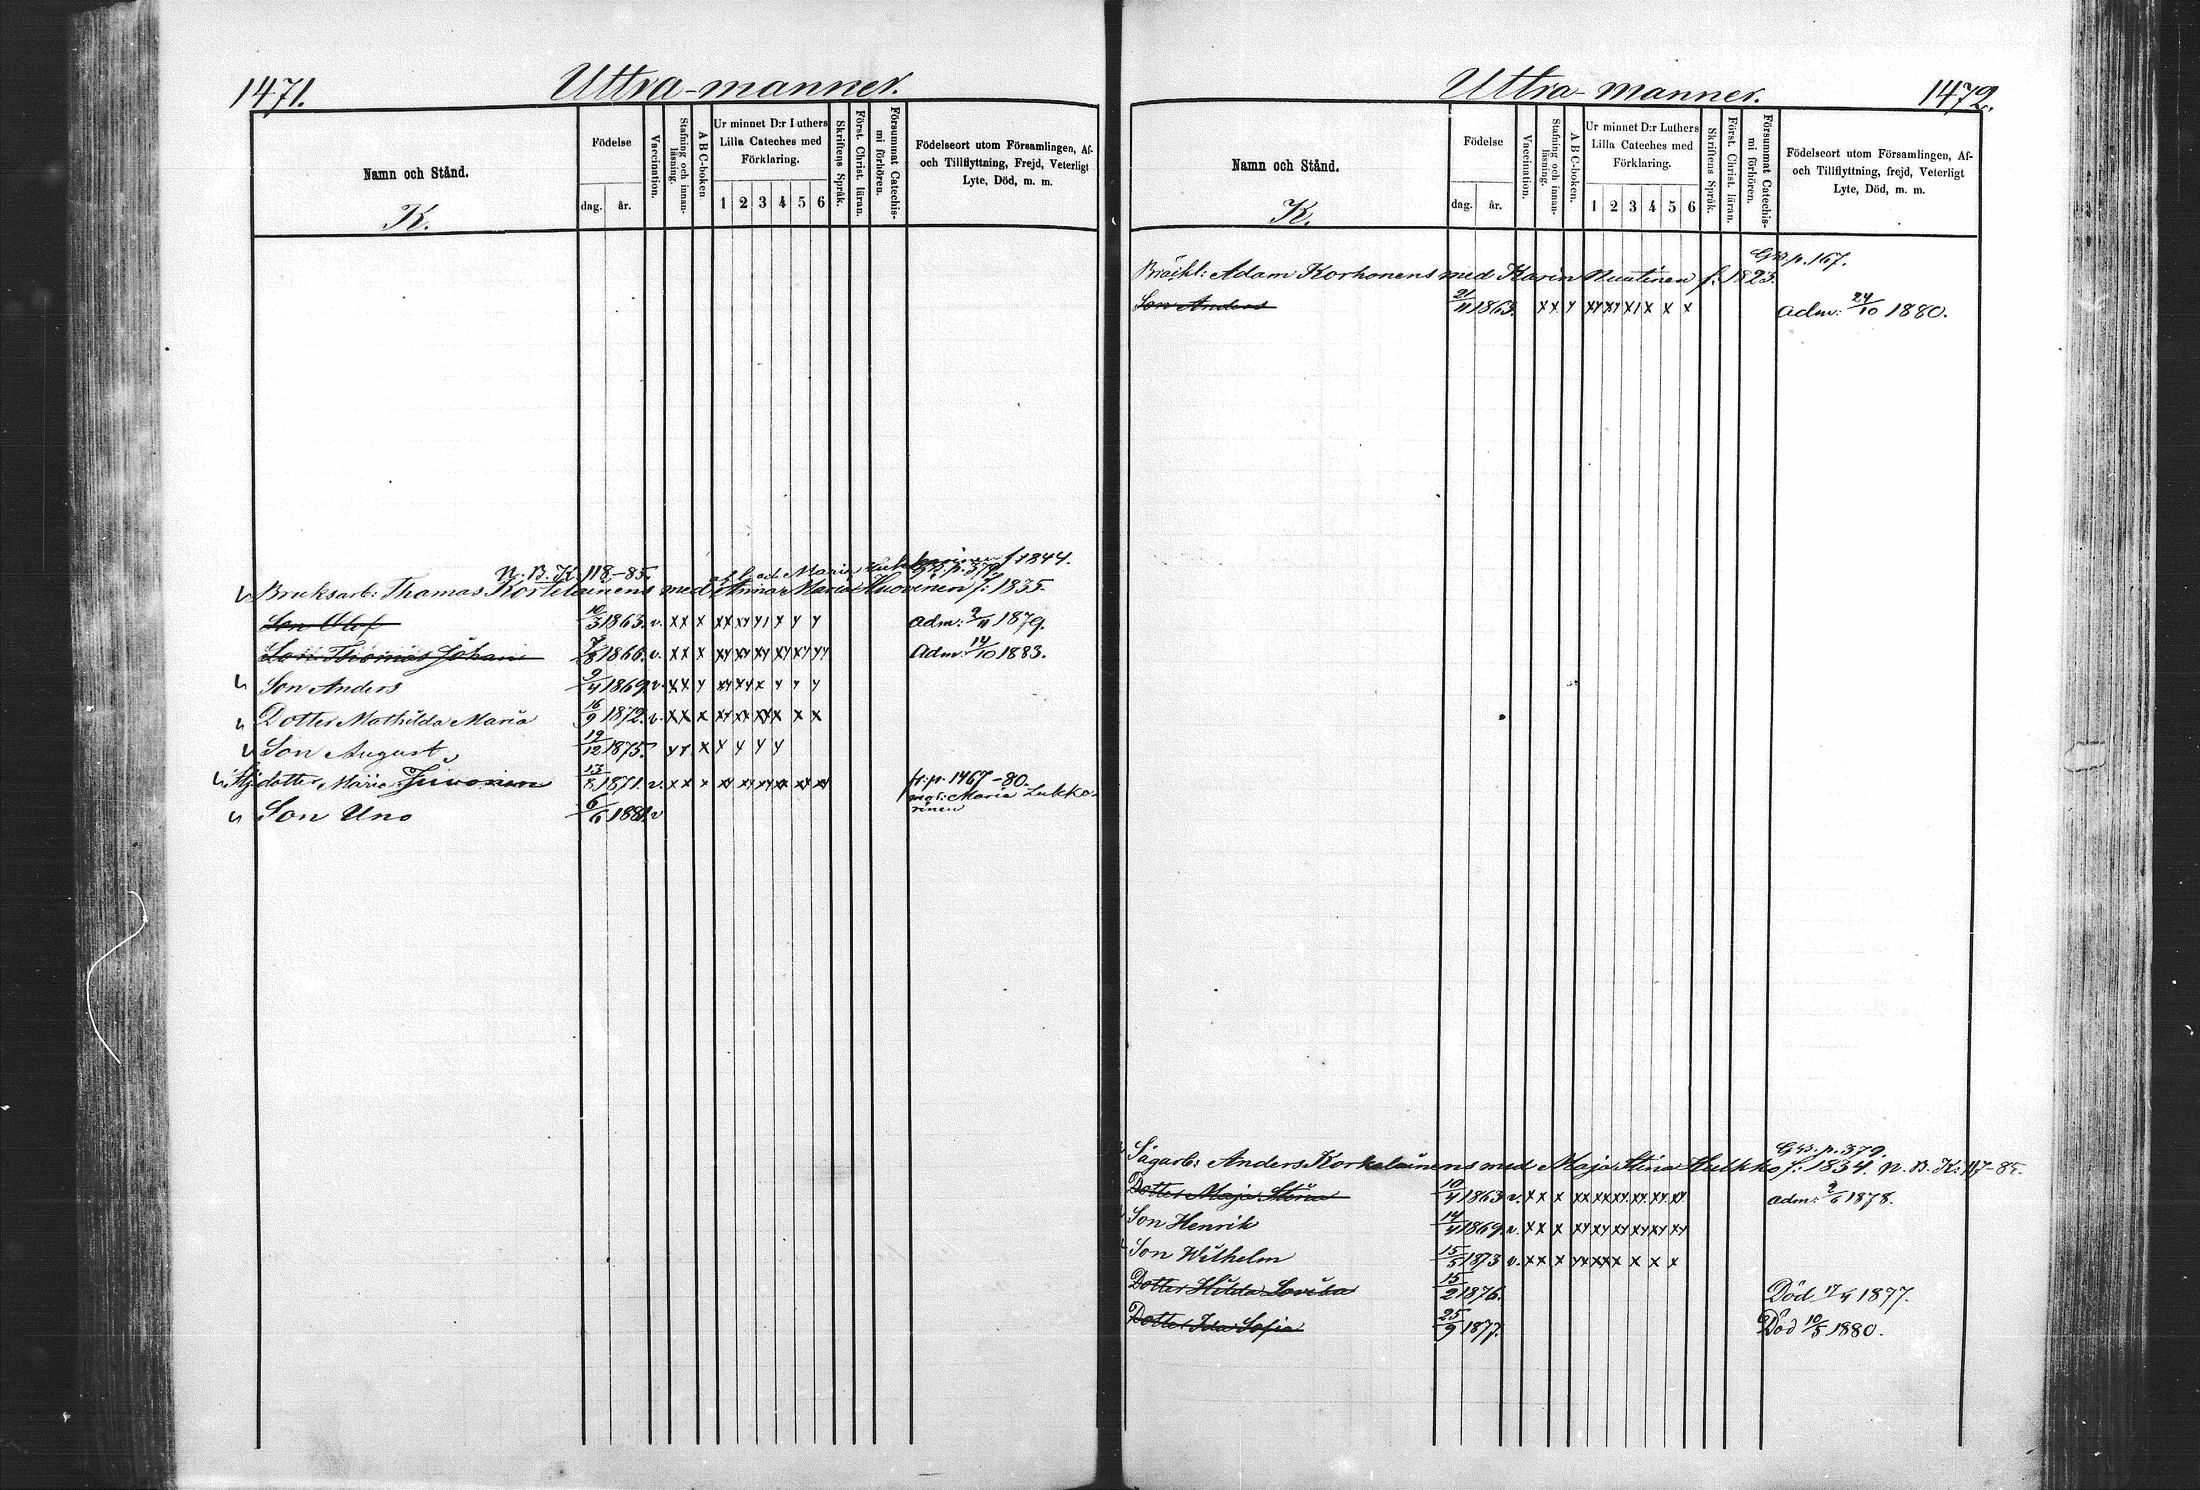 1471.
Uttra-manner.
Namn och Stånd.
K.
Födelse
dag. år.
Vaccination.
Stafning och innanläsning.
A B C-boken
Ur minnet D:r Luthers
Lilla Cateches med
Förklaring.
1 2 3 4 5 6
Skriftens Språk.
Först. Christ. läran.
Försummat Catechismi förhören.
Födelseort utom Församlingen, Af-
och Tillflyttning, Frejd, Veterligt
Lyte, Död, m. m.
N. B. K. 118-85. och Maria f 1844.
Bruksarb: Thomas Kortelainens med Anna Maria Huovinen f: 1835.
Son Olof 10/3 1863. v. xx x adm: 2/11 1879.
Son Thomas Johan 7/8 1866. v. xx x adm: 14/10 1883.
Son Anders 9/4 1869. v.
Dotter Mathilda Maria 16/9 1872. v.
Son August 19/12 1875.
dotter Maria 13/8 1871. v. fr: p. 1467-80.
mod: Maria Lukka-
rinen
Son Uno 6/6 1881. v
Uttra-manner.
1472.
Namn och Stånd.
K.
Födelse
dag. år.
Vaccination.
Stafning och innanläsning.
A B C-boken.
Ur minnet D:r Luthers
Lilla Cateches med
Förklaring.
1 2 3 4 5 6
Skriftens Språk.
Först. Christ. läran.
Försummat Catechismi förhören.
Födelseort utom Församlingen, Af-
och Tillflyttning, frejd, Veterligt
Lyte, Död, m. m.
GB. p. 167.
Adam Korhonens med Karin Nuutinen f: 1823.
Son Anders 21/11 1863. adm: 24/10 1880.
GB. p. 379.
Sågarb: Anders Korkalainens med Maja Stina Hulkko f: 1834. N. B. K: 117-85.
Dotter Maja Stina 10/4 1863 v. adm: 2/6 1878.
Son Henrik 14/4 1869. v.
Son Wilhelm 15/5 1873 v.
Dotter Hilda Lovisa 15/2 1876. Död 17/4 1877.
Dotter Ida Sofia 25/9 1877. Död 10/5 1880.